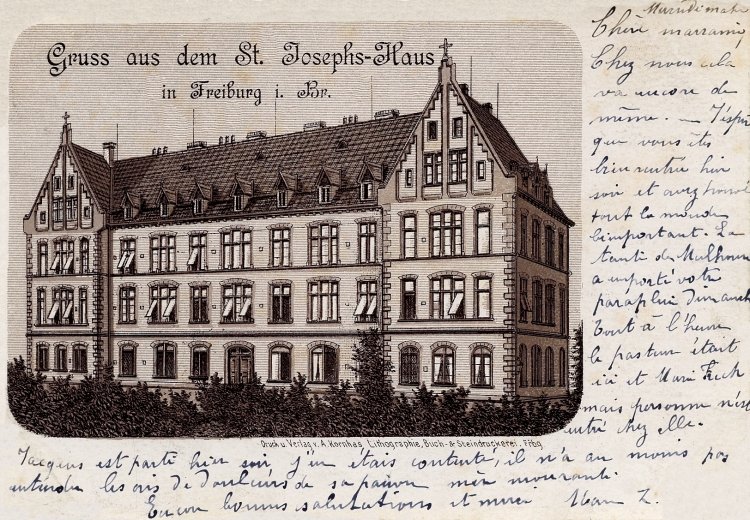 Gruss aus dem St. Josephs-Haus
in Freiburg i. Br.
Druck u. Verlag v. A. Kornhas Lithographie, Buch- & Steindruckerei, Frbg
Chère marraine,
Chez nous cela
va encore de
même. — J'espère
que vous êtes
bien rentrée hier
soir et avez trouvé
tout le monde
bimportant. La
tante de Mulhouse
a emporté votre
parapluie dimanche
Tout à l'heure
le pasteur était
ici et Marie
mais personne n'est
entré chez elle.
est parti hier soir, j'en étais contente, il n'a au moins pas
entendu les cris de douleurs de sa mourante.
Encore bonnes salutations et merci